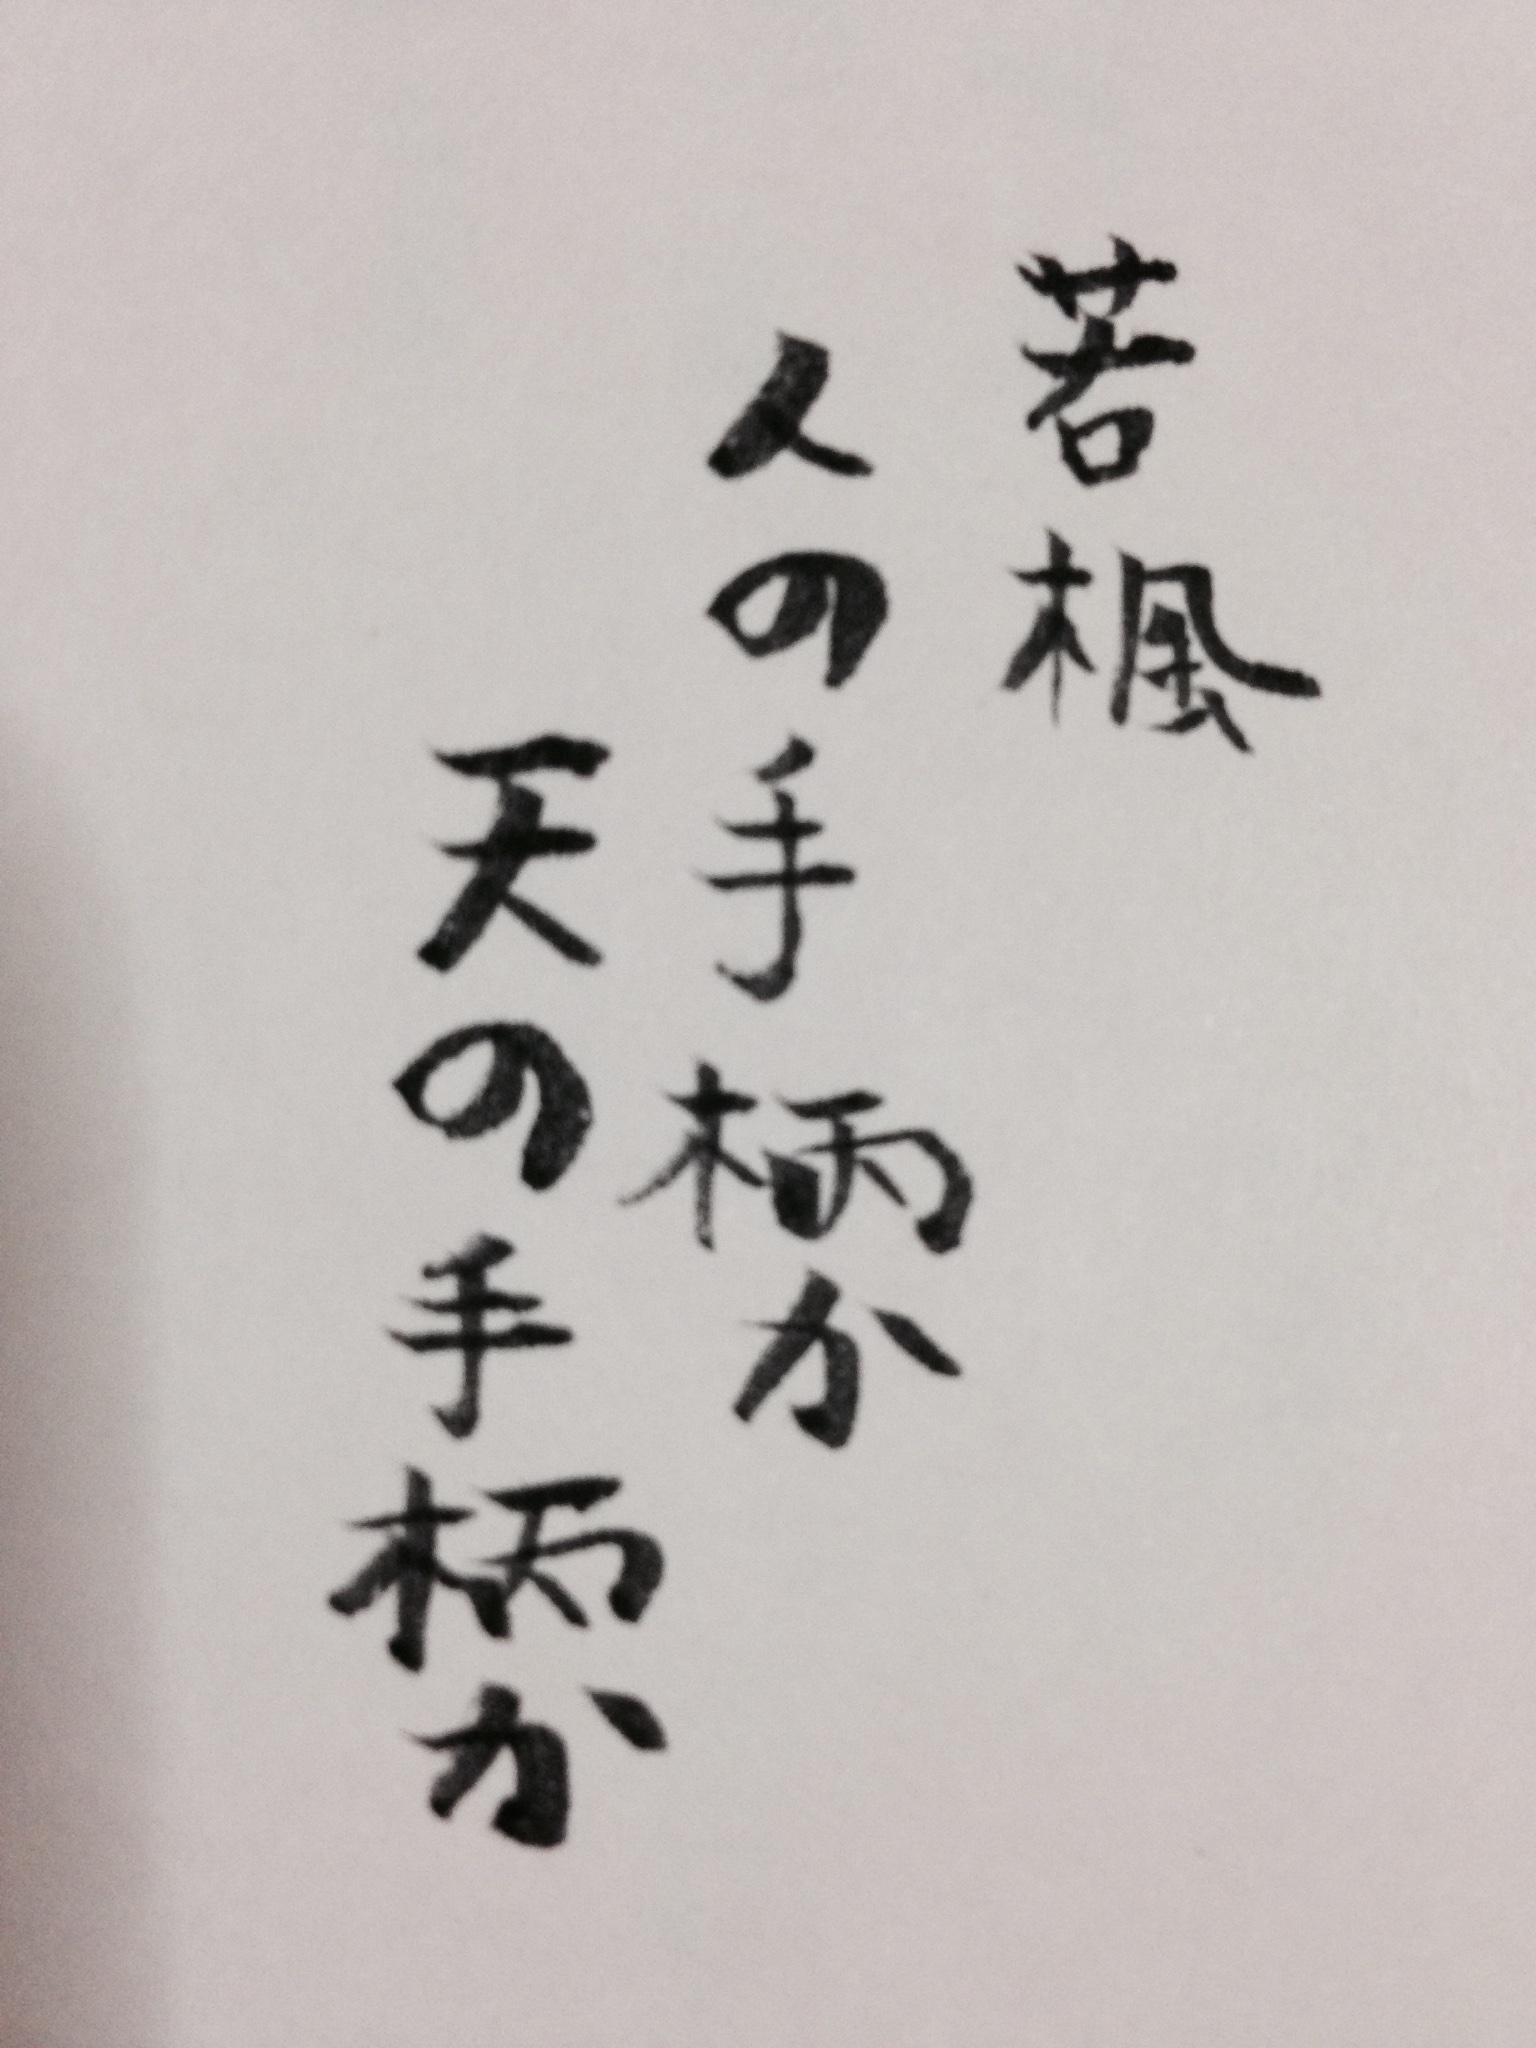 若楓
人の手柄か
天の手柄か